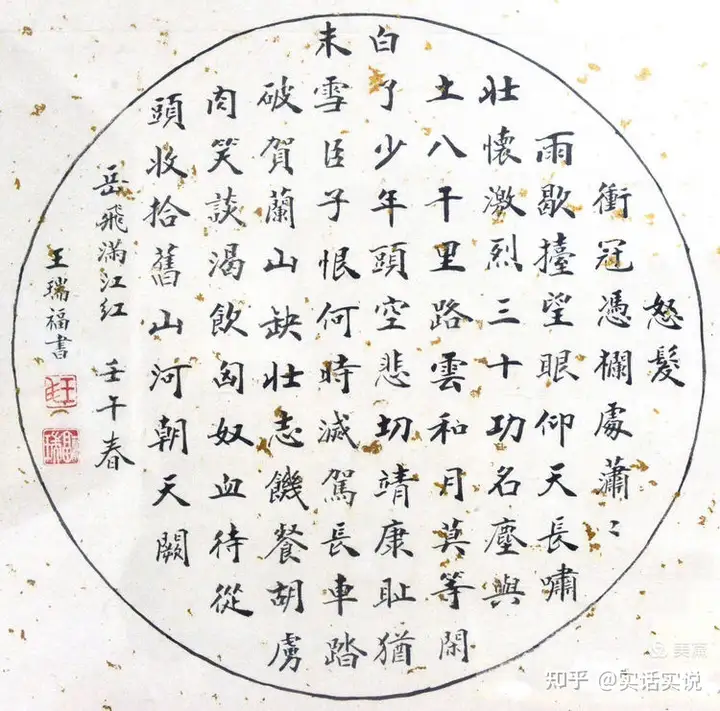 怒髮
衝冠憑欄處瀟〻
雨歇擡望眼仰天長嘯
壯懷激烈三十功名塵與
土八千里路雲和月莫等閑
白了少年頭空悲切靖康耻猶
未雪臣子恨何時滅駕長車踏
破賀蘭山缺壯志饑餐胡虜
肉笑談渴飲匈奴血待從
頭收拾舊山河朝天闕
岳飛滿江红 壬午春
王瑞福書
美篇
知乎 @实话实说